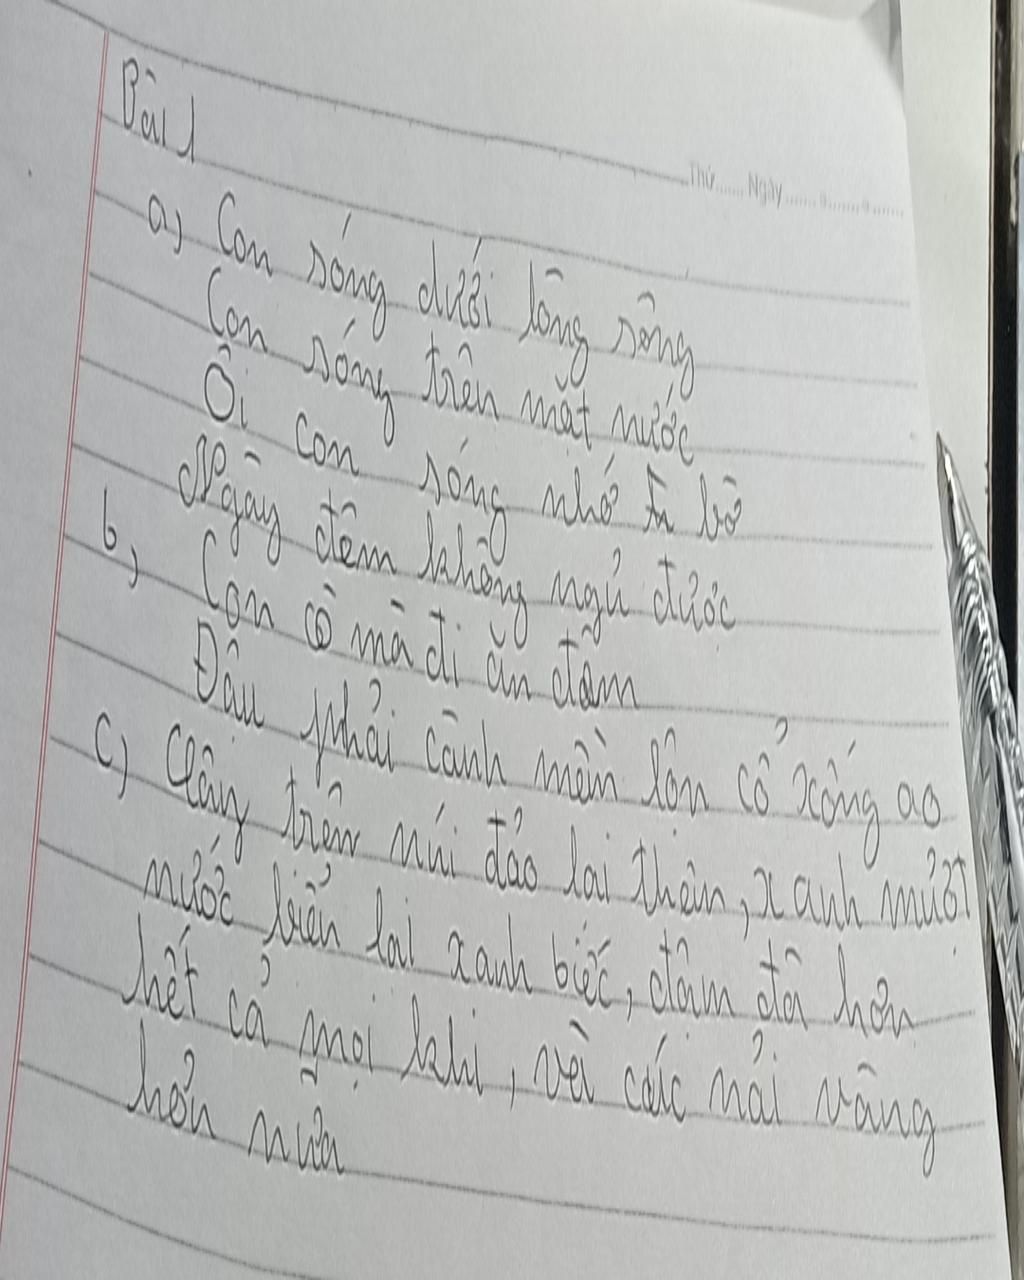 Thứ...... Ngày...............
Bài 1
a) Con sóng dưới lòng sông
Con sóng trên mặt nước
Ôi con sóng nhớ bờ
Ngày đêm không ngủ được
b, Con cò mà đi ăn đêm
Đâu phải cành mềm lộn cổ xống ao
c) Cây trên núi đảo lại thêm, xanh mượt
nước biển lại xanh biếc, đậm đà hơn
hết cả mọi khi, và cát mải vàng
hơn nữa